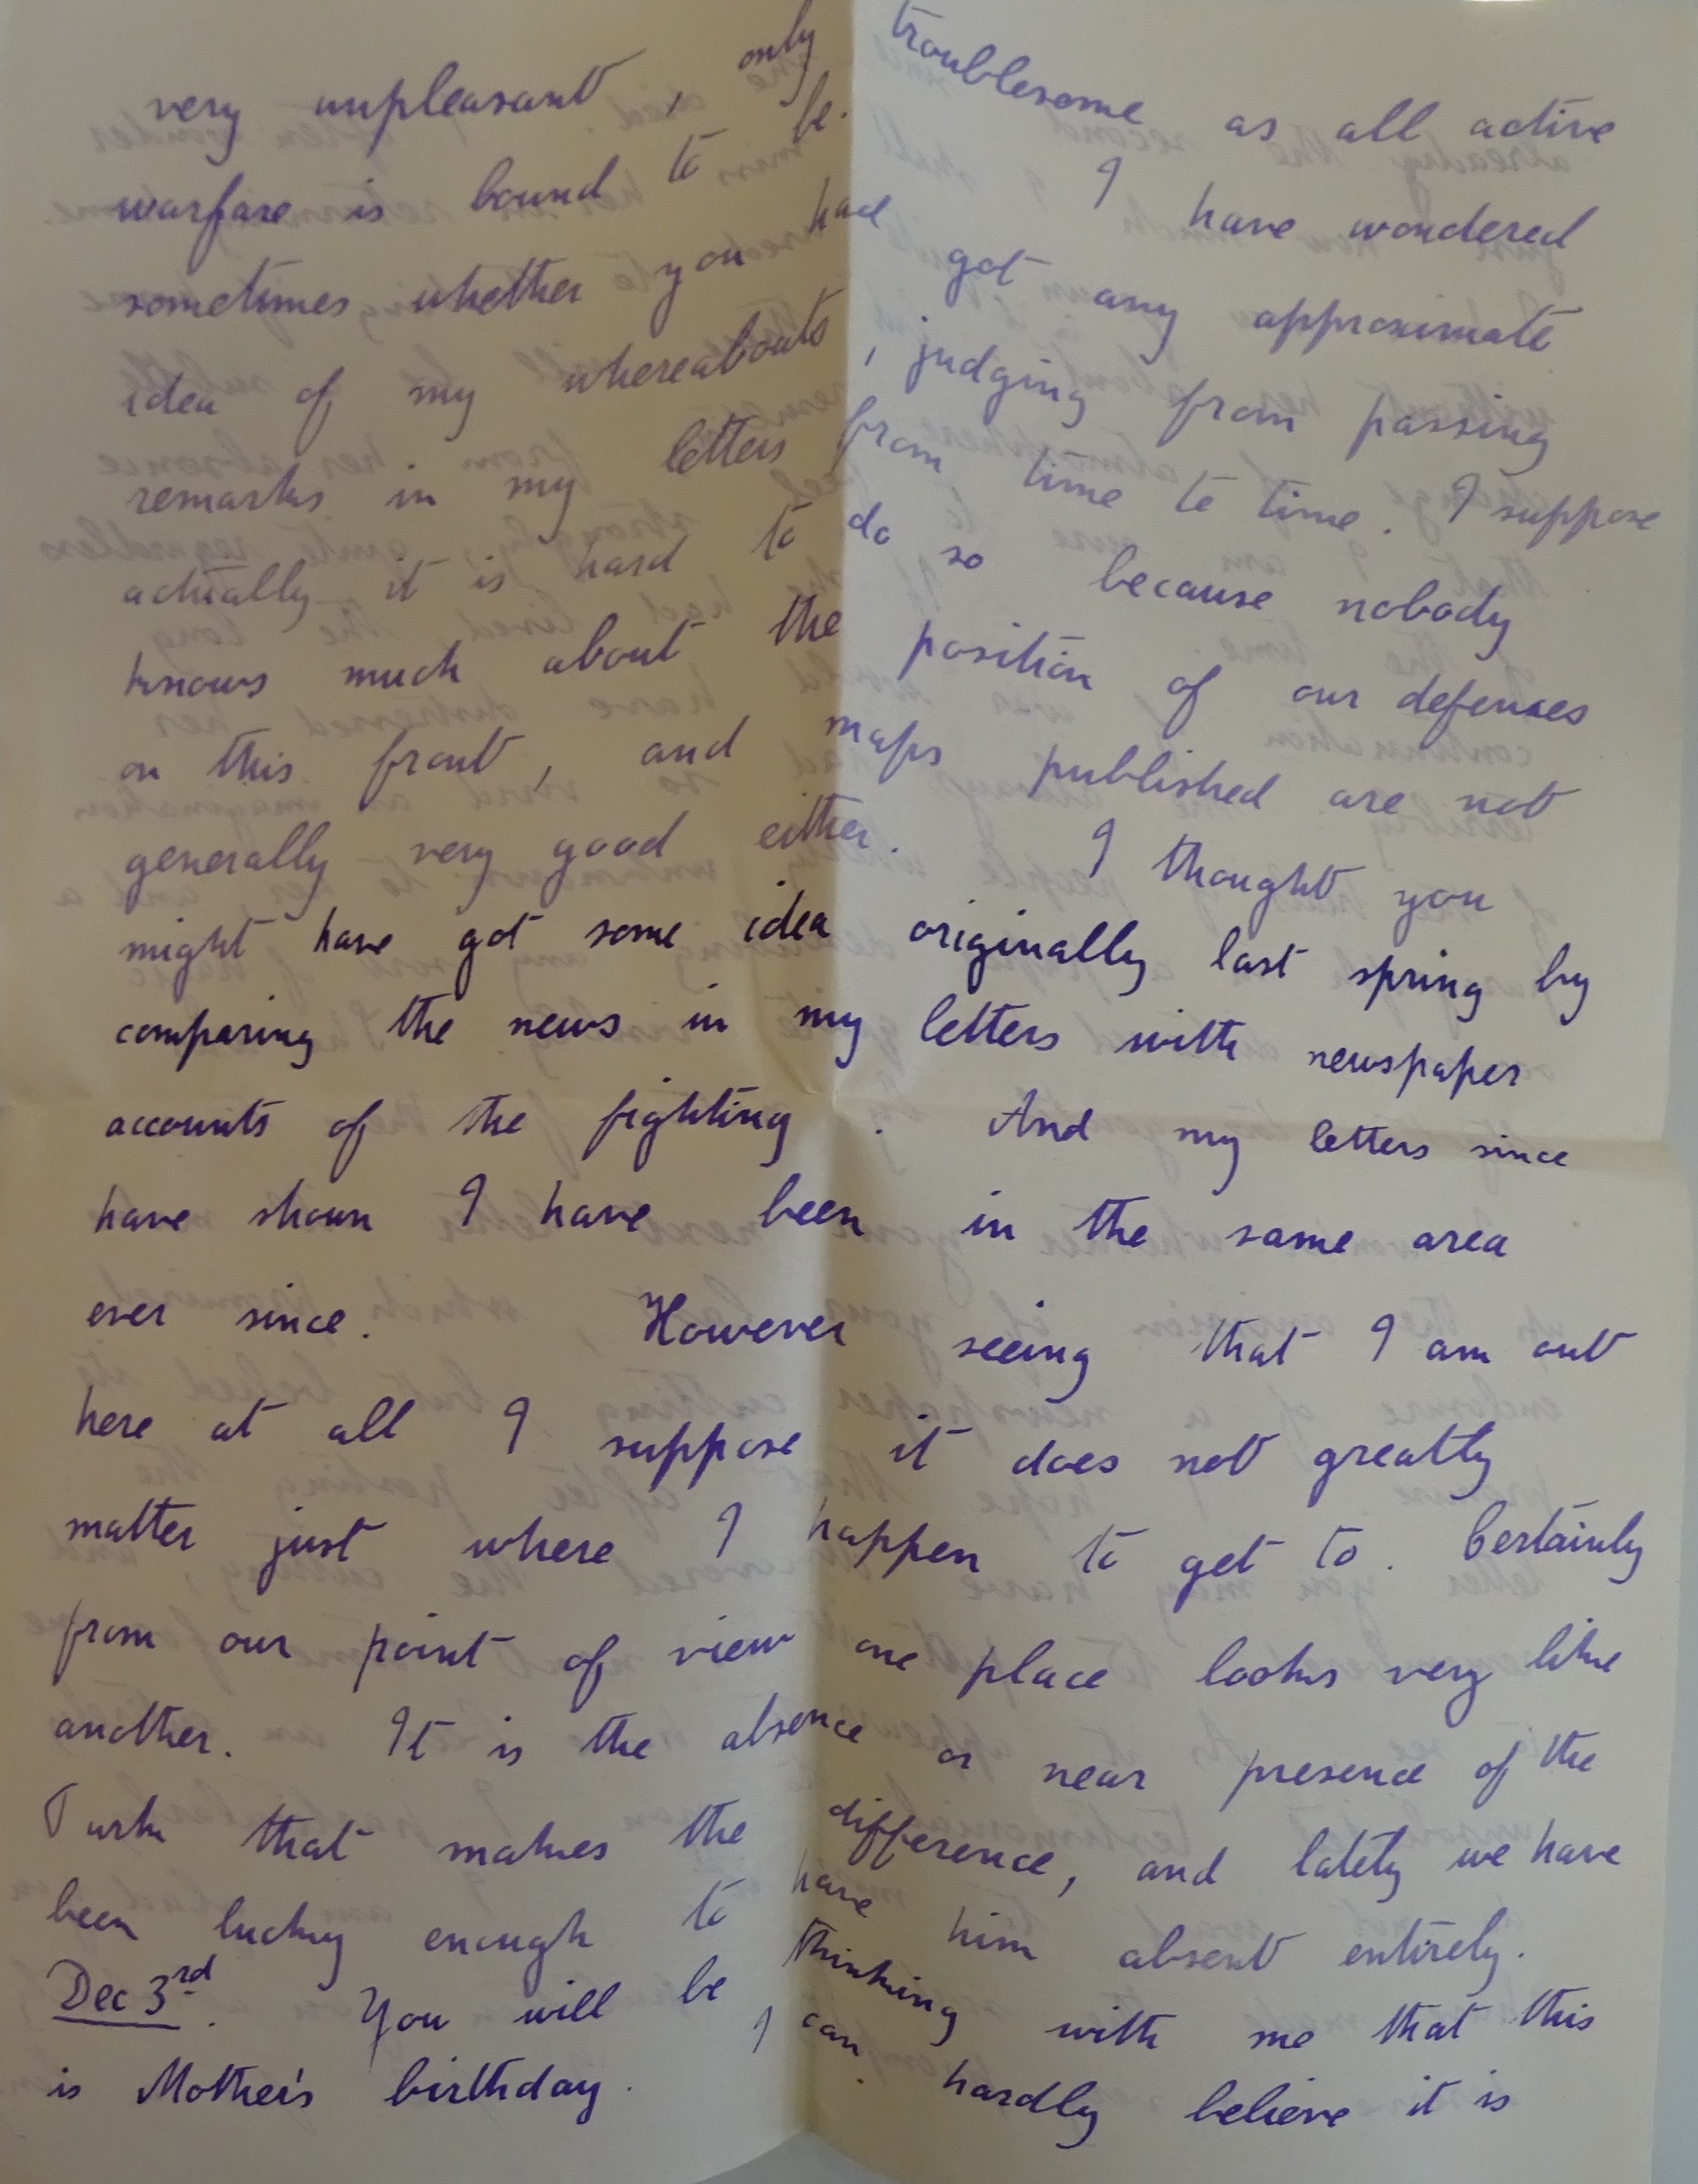 very unpleasant, only troublesome as all active
warfare is bound to be. I have wondered
sometimes whether you had got any approximate
idea of my whereabouts, judging from passing
remarks in my letters from time to time. I suppose
actually it is hard to do so because nobody
knows much about the position of our defenses
on this front, and maps published are not
generally very good either. I thought you
might have got some idea originally last spring by
comparing the news in my letters with newspaper
accounts of the fighting. And my letters since
have shown I have been in the same area
ever since. However seeing that I am out
here at all I suppose it does not greatly
matter just where I happen to get to. Certainly
from our point of view one place looks very like
another. It is the absence or near presence of the
Turk that makes the difference, and lately we have
been lucky enough to have him absent entirely.
Dec 3rd. You will be thinking with me that this
is Mother's birthday. I can hardly believe it is